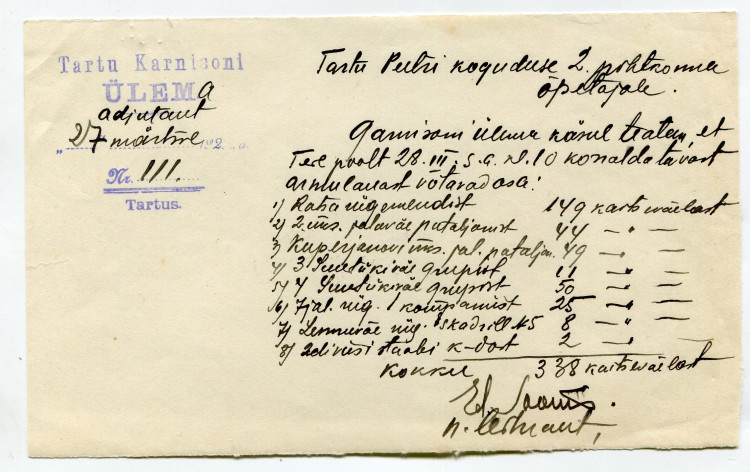 Tartu Karnisoni
ÜLEMA
adjutant
"27" märtsil 192 a.
Nr. 111.
Tartus.
Tartu Peetri koguduse 2. pihtkonna
õpetajale.
Garnisoni ülema käsul teatan, et
Teie poolt 28. III. s. a. kl. 10 korraldatavast
armulauast võtavad osa:
1) Ratsa rügemendist 149 kaitseväelast
2) 2. üks. jalaväe pataljonist 44 —"— —
3) Kuperjanovi üks. jal. pataljon. 49 —"— —
4) 3 Suurtükiväe grupist 11 —"— —
5) 4 Suurtükiväe grupist 50 —"— —
6) 7 jal. rüg. 1 kompaniist 25 —"— —
7) Lennuväe rüg. eskadrill N5 8 —"— —
8) 2 diviisi staabi k-dost 2 —"— —
Kokku 338 kaitseväelast
n. leitnant,